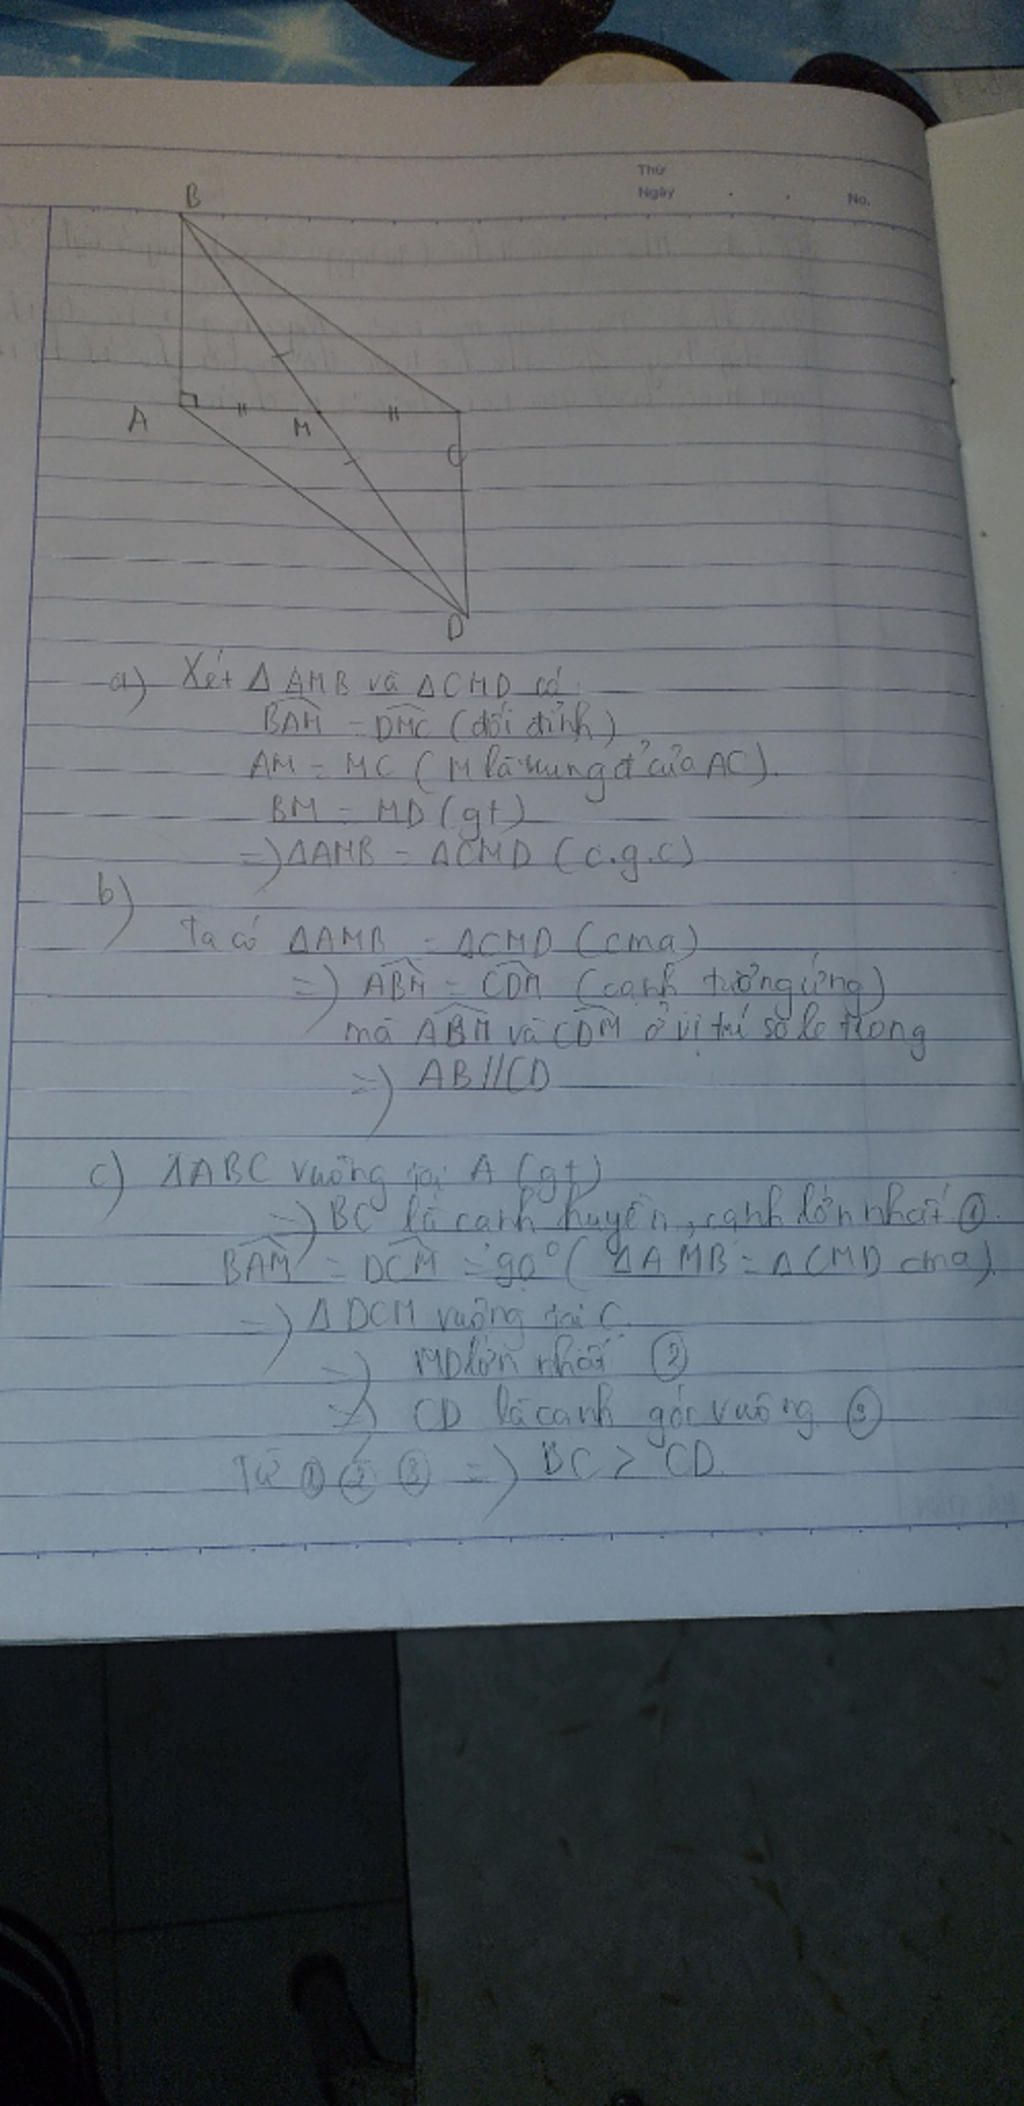 Thứ
Ngày . . No.
B
A
M
C
D
a) Xét Δ AMB và ΔCMD có:
BAM = DMC (đối đỉnh)
AM = MC (M là trung đ' của AC).
BM = MD (gt)
=> ΔAMB = ΔCMD (c.g.c)
b)
Ta có ΔAMB = ΔCMD (cma)
=> ABM = CDM (cạnh tương ứng)
mà ABM và CDM ở vị trí so le trong
=> AB//CD
c) ΔABC vuông tại A (gt)
=> BC là cạnh huyền, cạnh lớn nhất ①.
BAM = DCM = 90° (ΔAMB = ΔCMD cma).
=> Δ DCM vuông tại C.
=> MD lớn nhất ②
=> CD là cạnh góc vuông ③
Từ ① ② ③ => BC > CD.